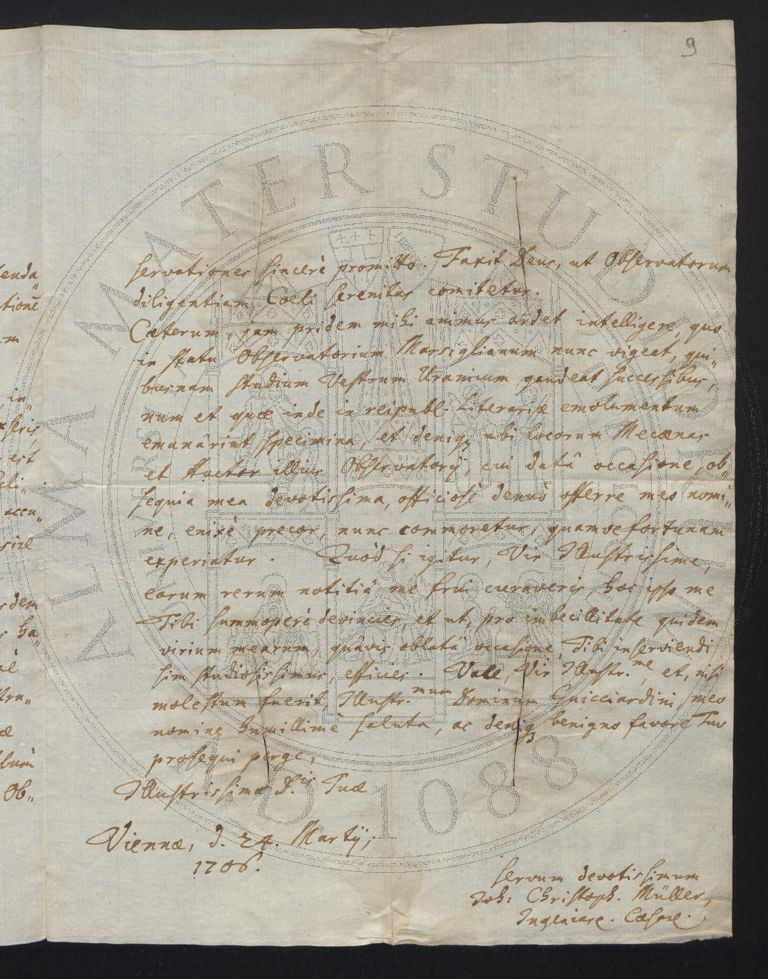 9
servationes sincerè promitto. Faxit Deus, ut Observatorum
diligentiam Coeli serenitas comitetur.
Cæterum, jam pridem mihi animus ardet intelligere, quo
in statu Observatorium Marsiglianum nunc vigeat, qui„
busnam studium Vestrum Uranicum gaudeat successibus,
num et quæ inde in reipubl. Literariæ emolumentum
emanârint specimina, et deniq, ubi locorum Mecænas
et Auctor illius Observatorÿ, cui datâ occasione, ob„
sequia mea devotissima, officiosè denuò offerre meo nomi„
ne, enixè precor, nunc commoretur, quamve fortunam
experiatur. Quod si igitur, Vir Illustrissime,
earum rerum notitiâ me frui curaveris, hoc ipso me
Tibi summoperè devincies, et ut, pro imbecillitate quidem
virium mearum, quavis oblatâ occasione Tibi inserviendi
sim studiosissimus, efficies. Vale, Vir Illustr.me, et, nisi
molestum fuerit, Illustr.mum Dominum Guicciardini, meo
nomine humillimè saluta, ac deniq benigno favore Tuo
prosequi perge,
Illustrissimæ D.is Tuæ
Viennæ, d. 24. Martÿ,
1706.
servum devotissimum
Joh: Christoph. Müller,
Ingeniare. Cæsare.
lenda
tionē
m
in„
est
accu„
rdem
ha„
æ
Ob„
ALMA MATER STUDIORUM
A.D. 1088